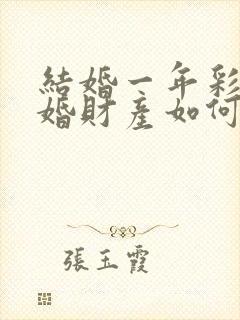 結婚一年彩
婚財產如何
張玉霞